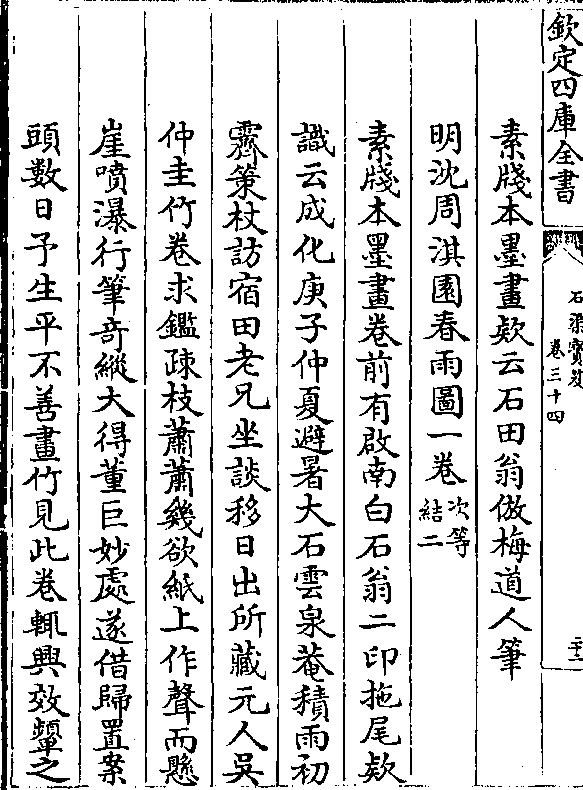 欽定四庫全書
石渠寶笈
卷三十四
素牋本墨畫欵云石田翁倣梅道人筆
明沈周淇園春雨圖一卷次等
結二
素牋本墨畫卷前有啟南白石翁二印拖尾欵
識云成化庚子仲夏避暑大石雲泉菴積雨初
霽策杖訪宿田老兄坐談移日出所藏元人吳
仲圭竹卷求鑑疎枝蕭蕭幾欲紙上作聲而懸
崖噴瀑行筆竒縱大得董巨妙處遂借歸置案
頭數日予生平不善畫竹見此卷輙興效顰之